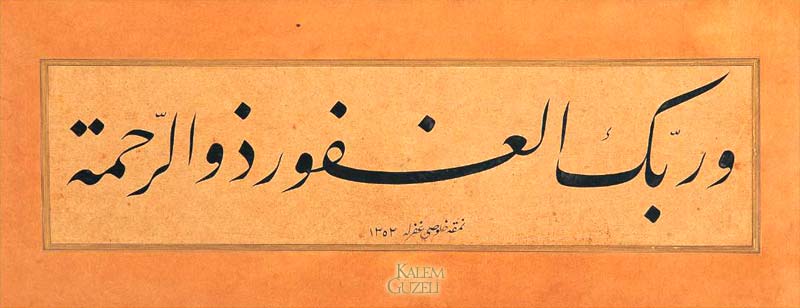 وربّك الغفور ذوالرّحمة
نمقه خلوصي غفرله ١٣٥٢
KALEM
GÜZELİ